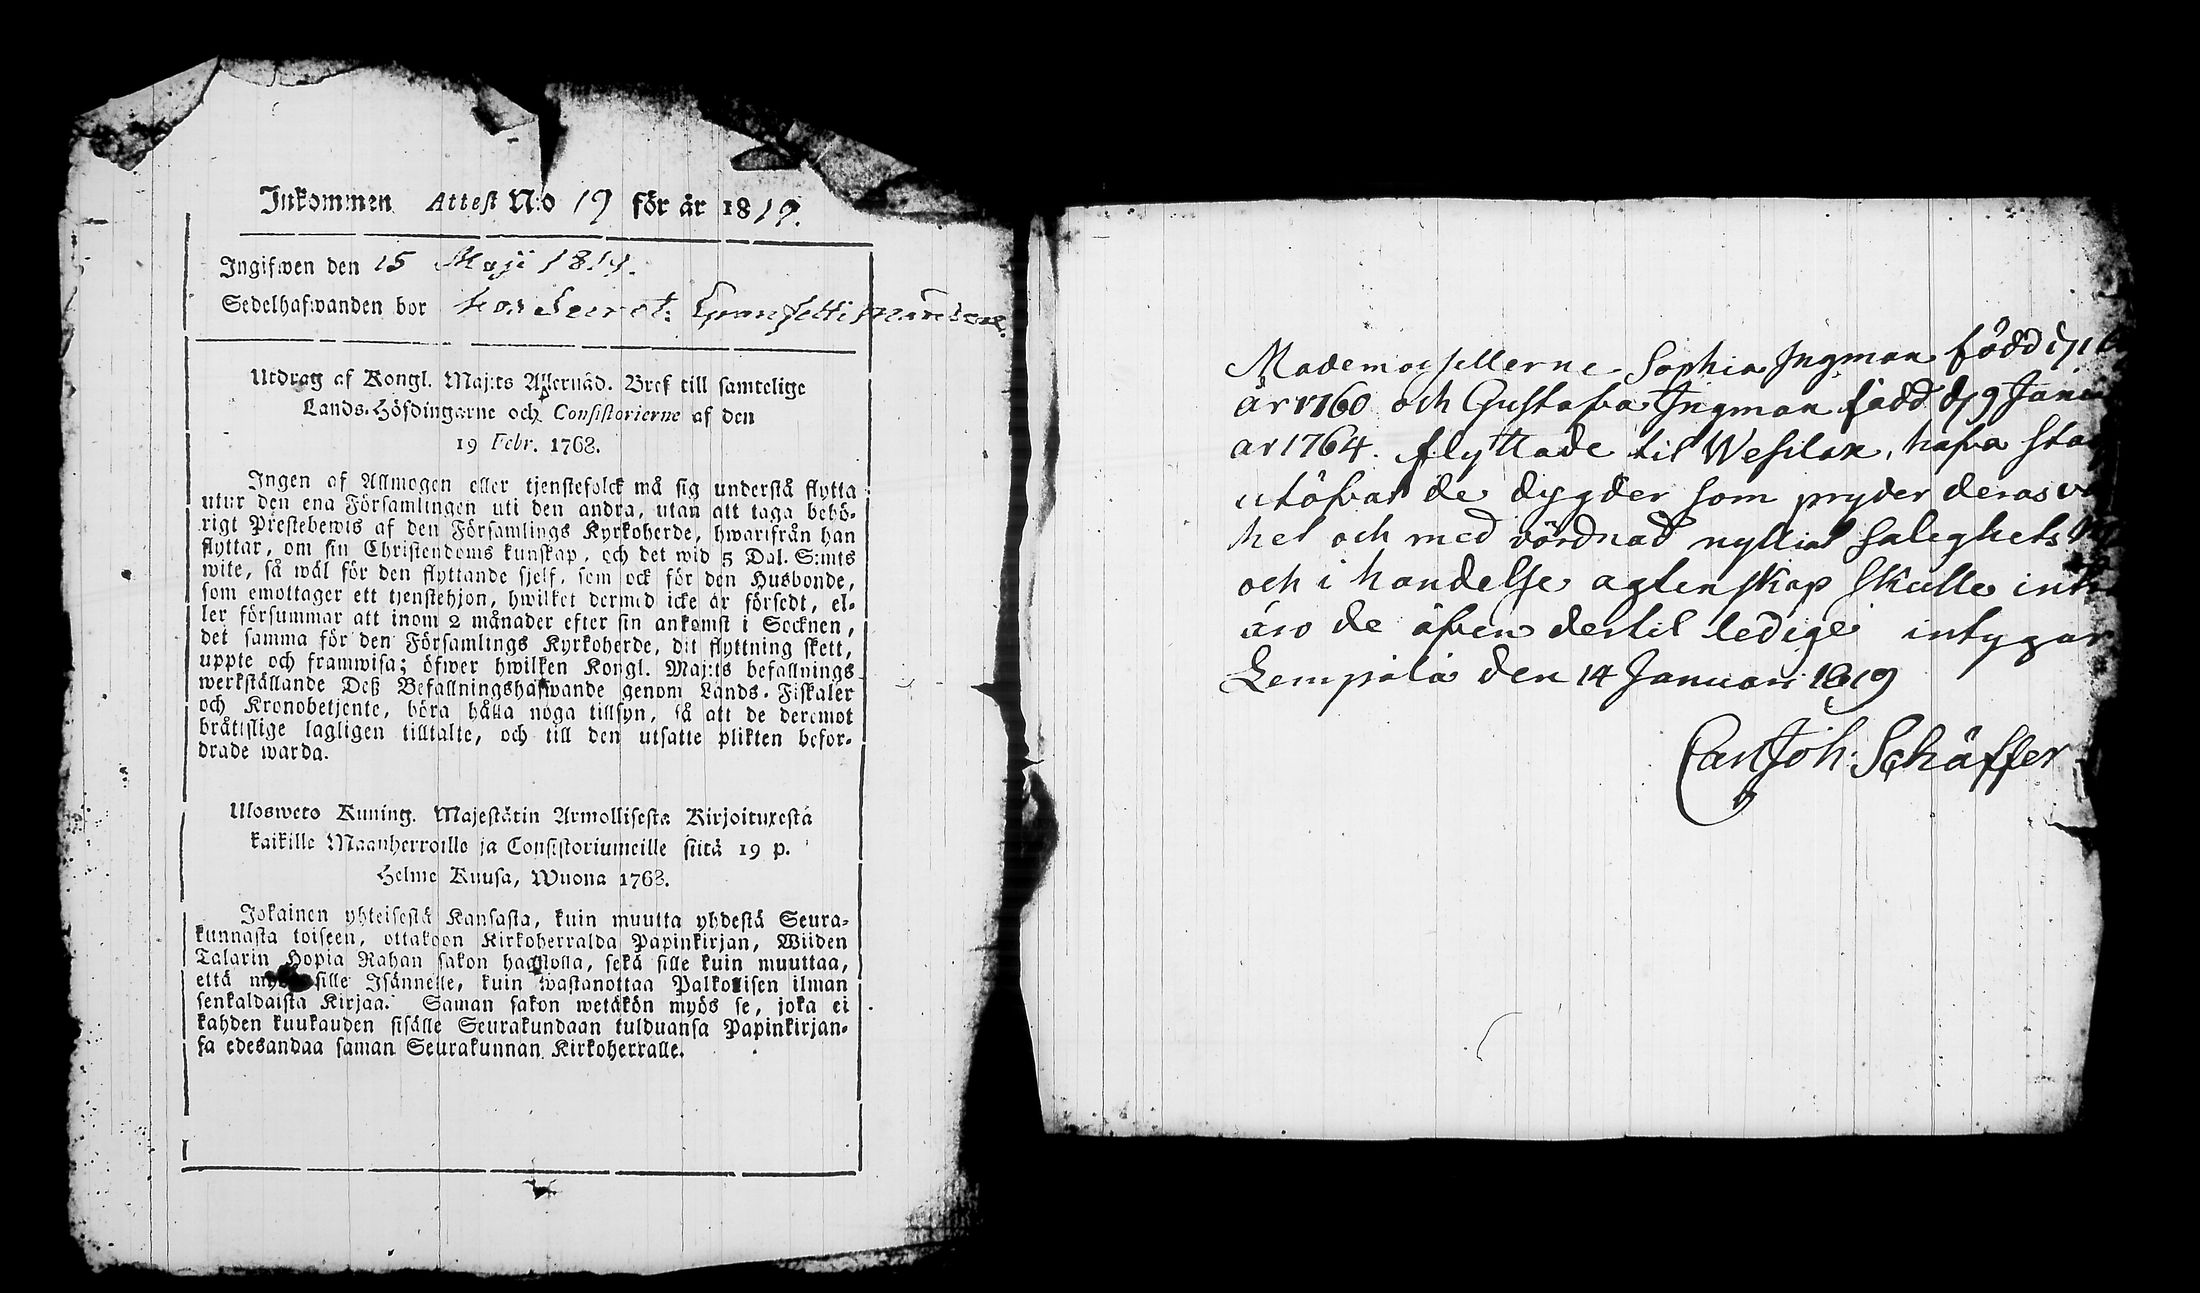 Inkommen Attest No 19 för år 1819.
Ingifwen den 15 Maji 1819.
Sedelhafwanden bor hos Secret:
Utdrag af Kongl. Maj:ts Allernåd. Bref till samtelige
Lands-Höfdingarne och Consistorierne af den
19 Febr. 1768.
Ingen af Allmogen eller tjenstefolck må sig understå flytta
utur den ena Församlingen uti den andra, utan att taga behö-
rigt Prestebewis af den Församlings Kyrkoherde, hwarifrån han
flyttar, om sin Christendoms kunskap, och det wid 5 Dal. S:mts
wite, så wäl för den flyttande sjelf, som ock för den Husbonde,
som emottager ett tjenstehjon, hwilket dermed icke är försedt, el-
ler försummar att inom 2 månader efter sin ankomst i Socknen,
det samma för den Församlings Kyrkoherde, dit flyttning skett,
uppte och framwisa; öfwer hwilken Kongl. Maj:ts befallnings
werkställande Deß Befallningshafwande genom Lands-Fiskaler
och Kronobetjente, böra hålla noga tillsyn, så att de deremot
bråttslige lagligen tilltalte, och till den utsatte plikten befor-
drade warda.
Ulosweto Kuning. Majestätin Armollisesta Kirjoituxestä
kaikille Maanherroille ja Consistoriumeille siitä 19 p.
Helme Kuusa, Wuona 1768.
Jokainen yhteisestä Kansasta, kuin muutta yhdestä Seura-
kunnasta toiseen, ottakoon Kirkoherralda Papinkirjan, Wiiden
Talarin Hopia Rahan sakon haastolla, sekä sille kuin muuttaa,
että sille Isännelle, kuin wastanottaa Palkollisen ilman
senkaldaista Kirjaa. Saman sakon wetäkön myös se, joka ei
kahden kuukauden sisälle Seurakundaan tulduansa Papinkirjan-
sa edesandaa saman Seurakunnan Kirkoherralle.
Mademoisellerne Sophia Ingman född
år 1760 och Gustafva Ingman född d 9 Janu
år 1764. flyttade til Wesilax, hafva
utöfvat de dygder som pryder deras
het och med vördnad nyttiat Salighets
och i händelse agtenskap skulle
äro de äfven dertil ledige intygar
Lempälä den 14 Januari 1819
Carl Joh: Schäffer